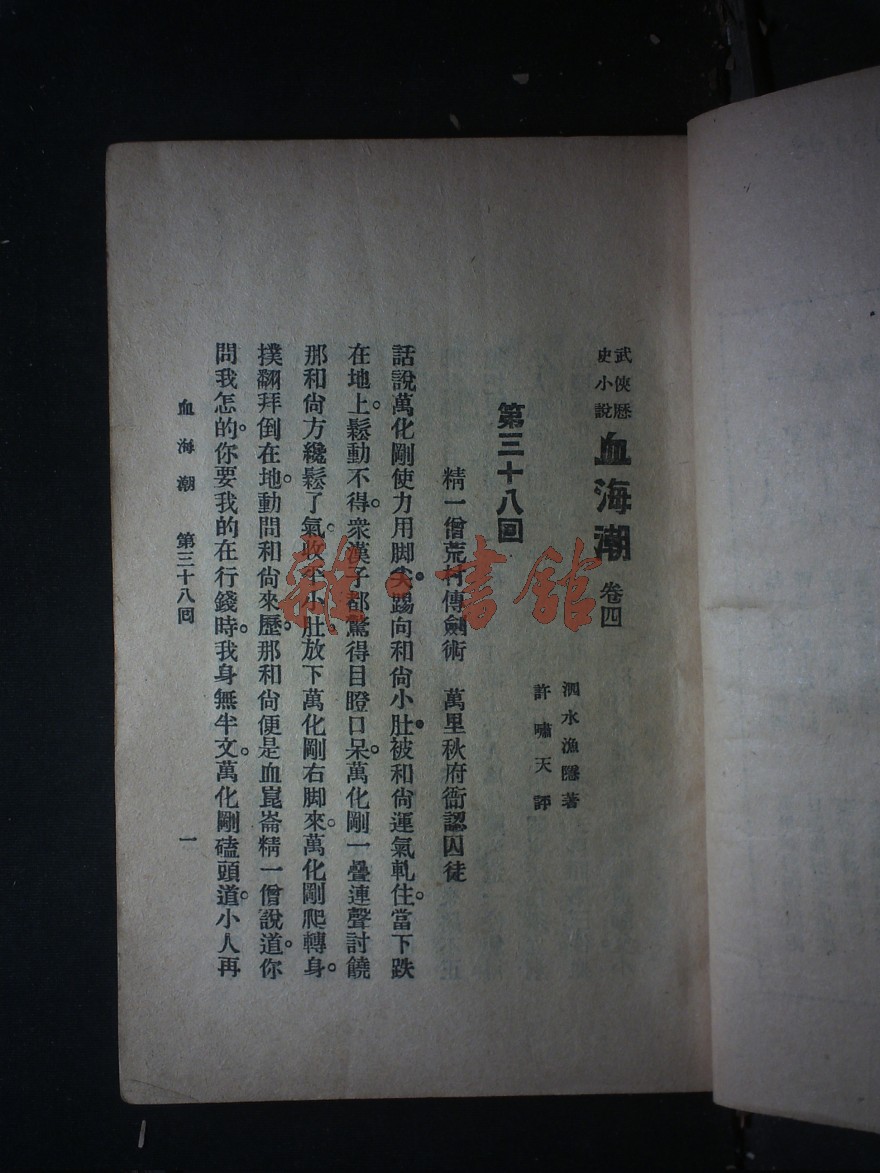 武俠歷史小說 血海潮 卷四
泗水漁隱著
許嘯天評
第三十八回
精一僧荒村傳劍術　萬里秋府衙認囚徒
話說萬化剛使力用脚尖。踢向和尙小肚。被和尙運氣軋住。當下跌
在地上。鬆動不得。衆漢子都驚得目瞪口呆。萬化剛一疊連聲討饒
那和尙方纔鬆了氣。收了小肚。放下萬化剛右脚來。萬化剛爬轉身。
撲翻拜倒在地。動問和尙來歷。那和尙便是血崑崙精一僧說道。你
問我怎的。你要我的在行錢時。我身無半文。萬化剛磕頭道。小人再
血海潮　第三十八回　一
雜·書館